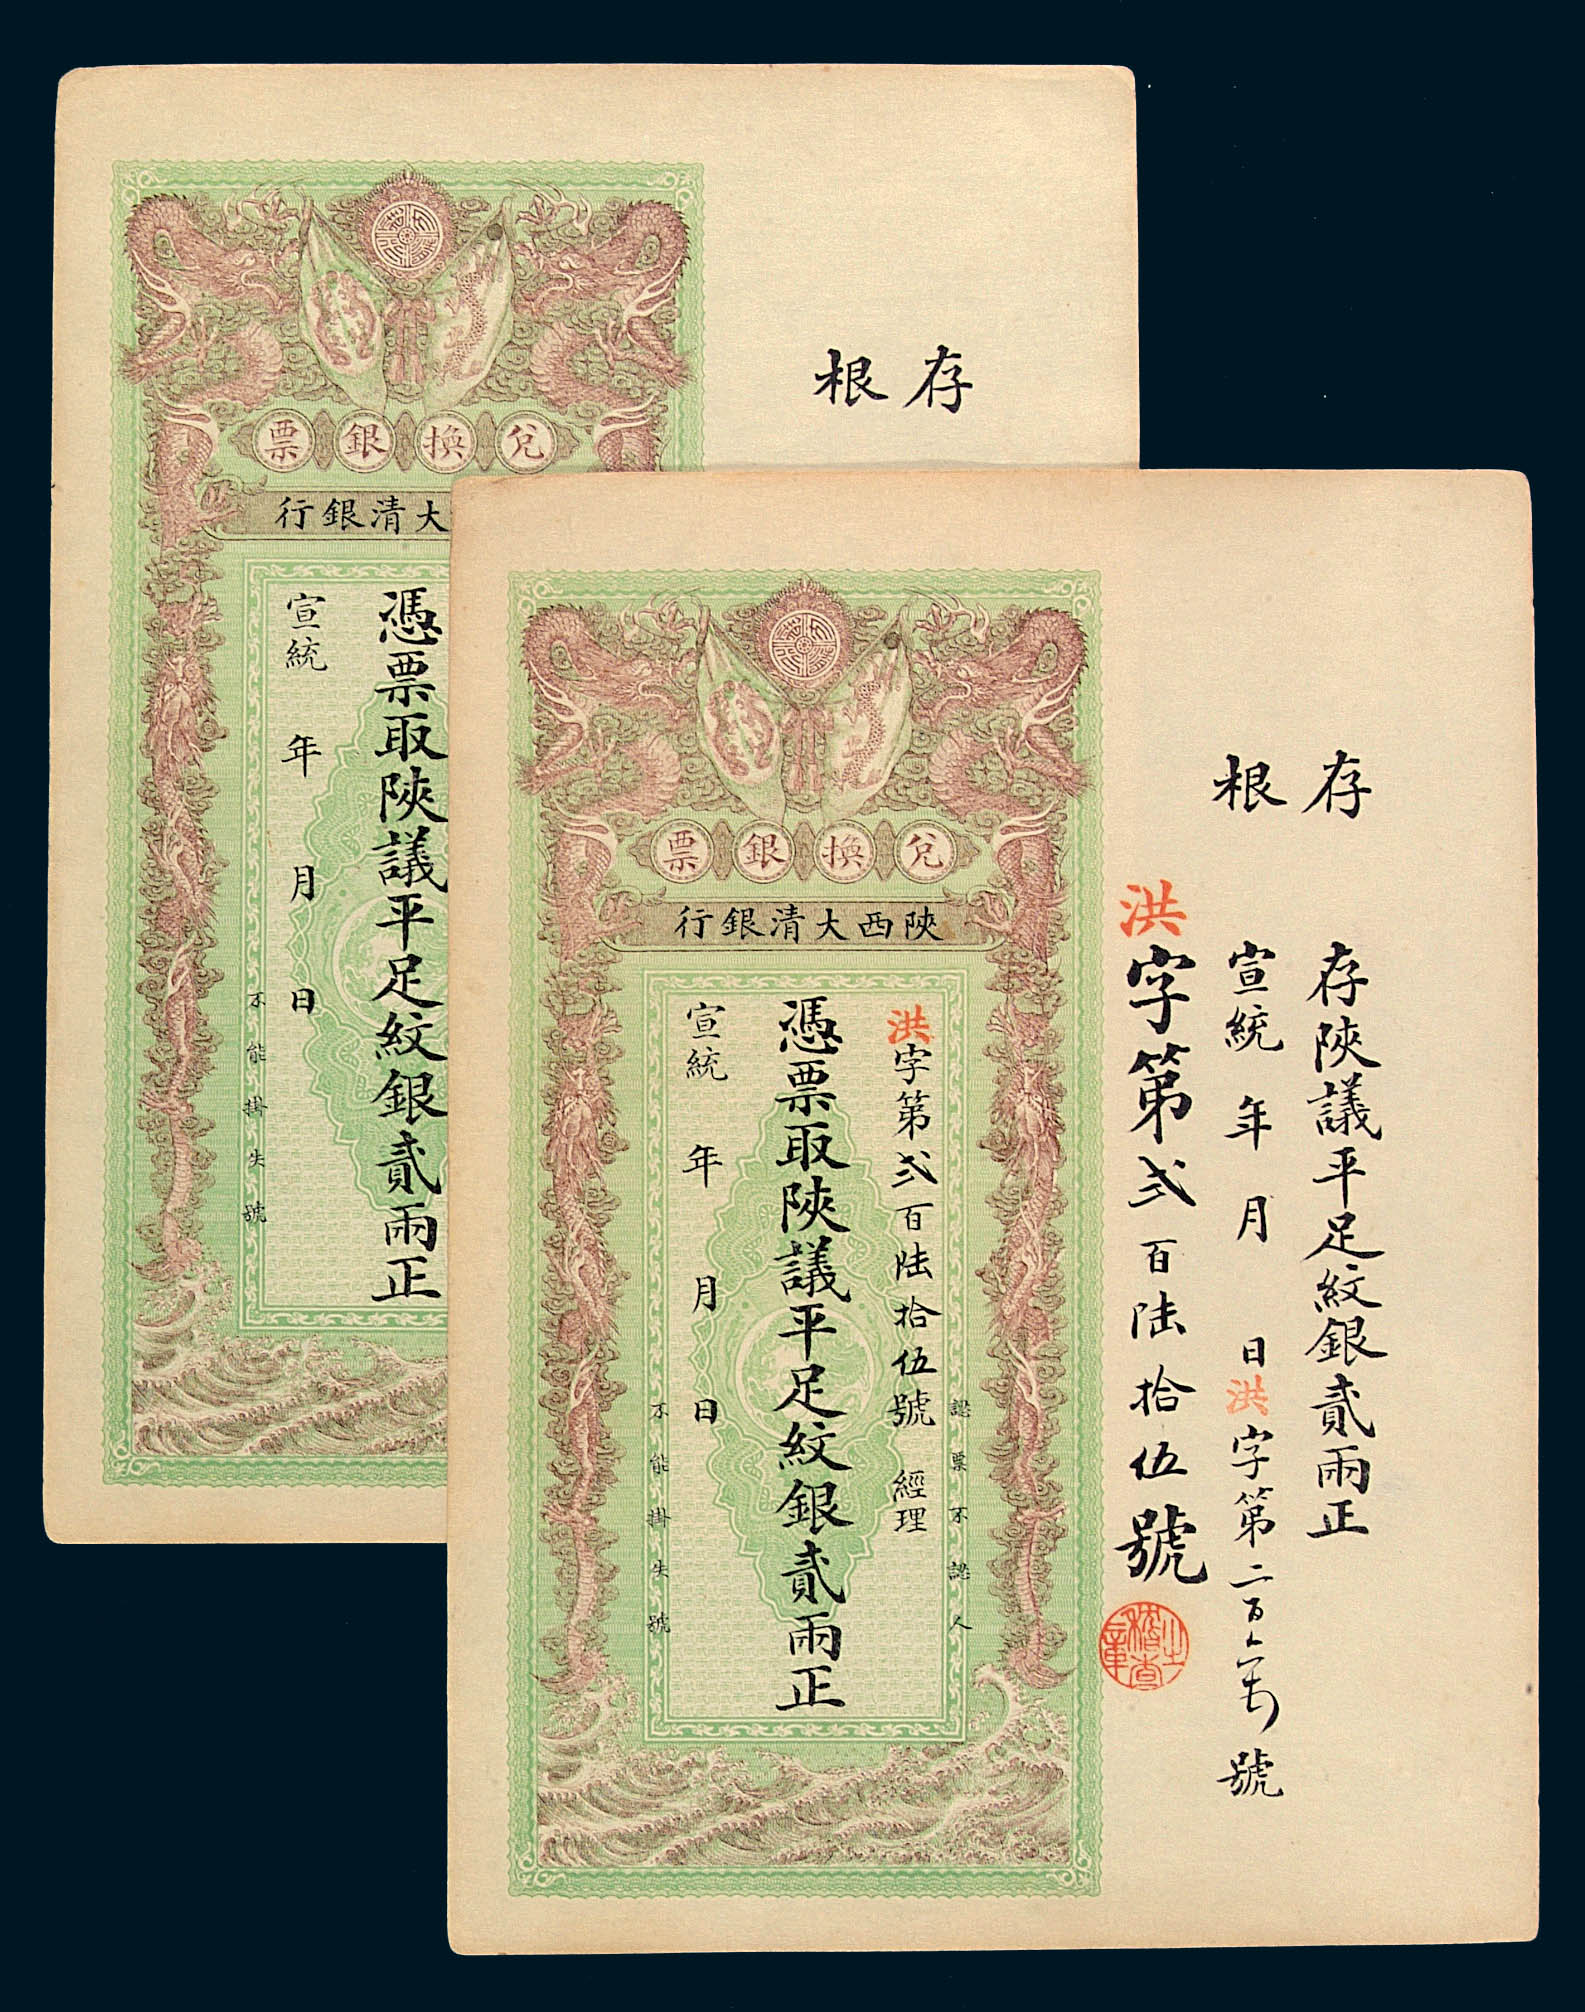 存根
兌換銀票
大清銀行
憑票取陝議平足紋銀貳兩正
宣統 年 月 日
不能掛失號
存根
存陝議平足紋銀貳兩正
宣統 年 月 日 洪字第二百 號
洪字第弍百陸拾伍號
稽查之章
兌換銀票
陝西大清銀行
認票不認人
洪字第弍百陸拾伍號 經理
憑票取陝議平足紋銀貳兩正
宣統 年 月 日
不能掛失號